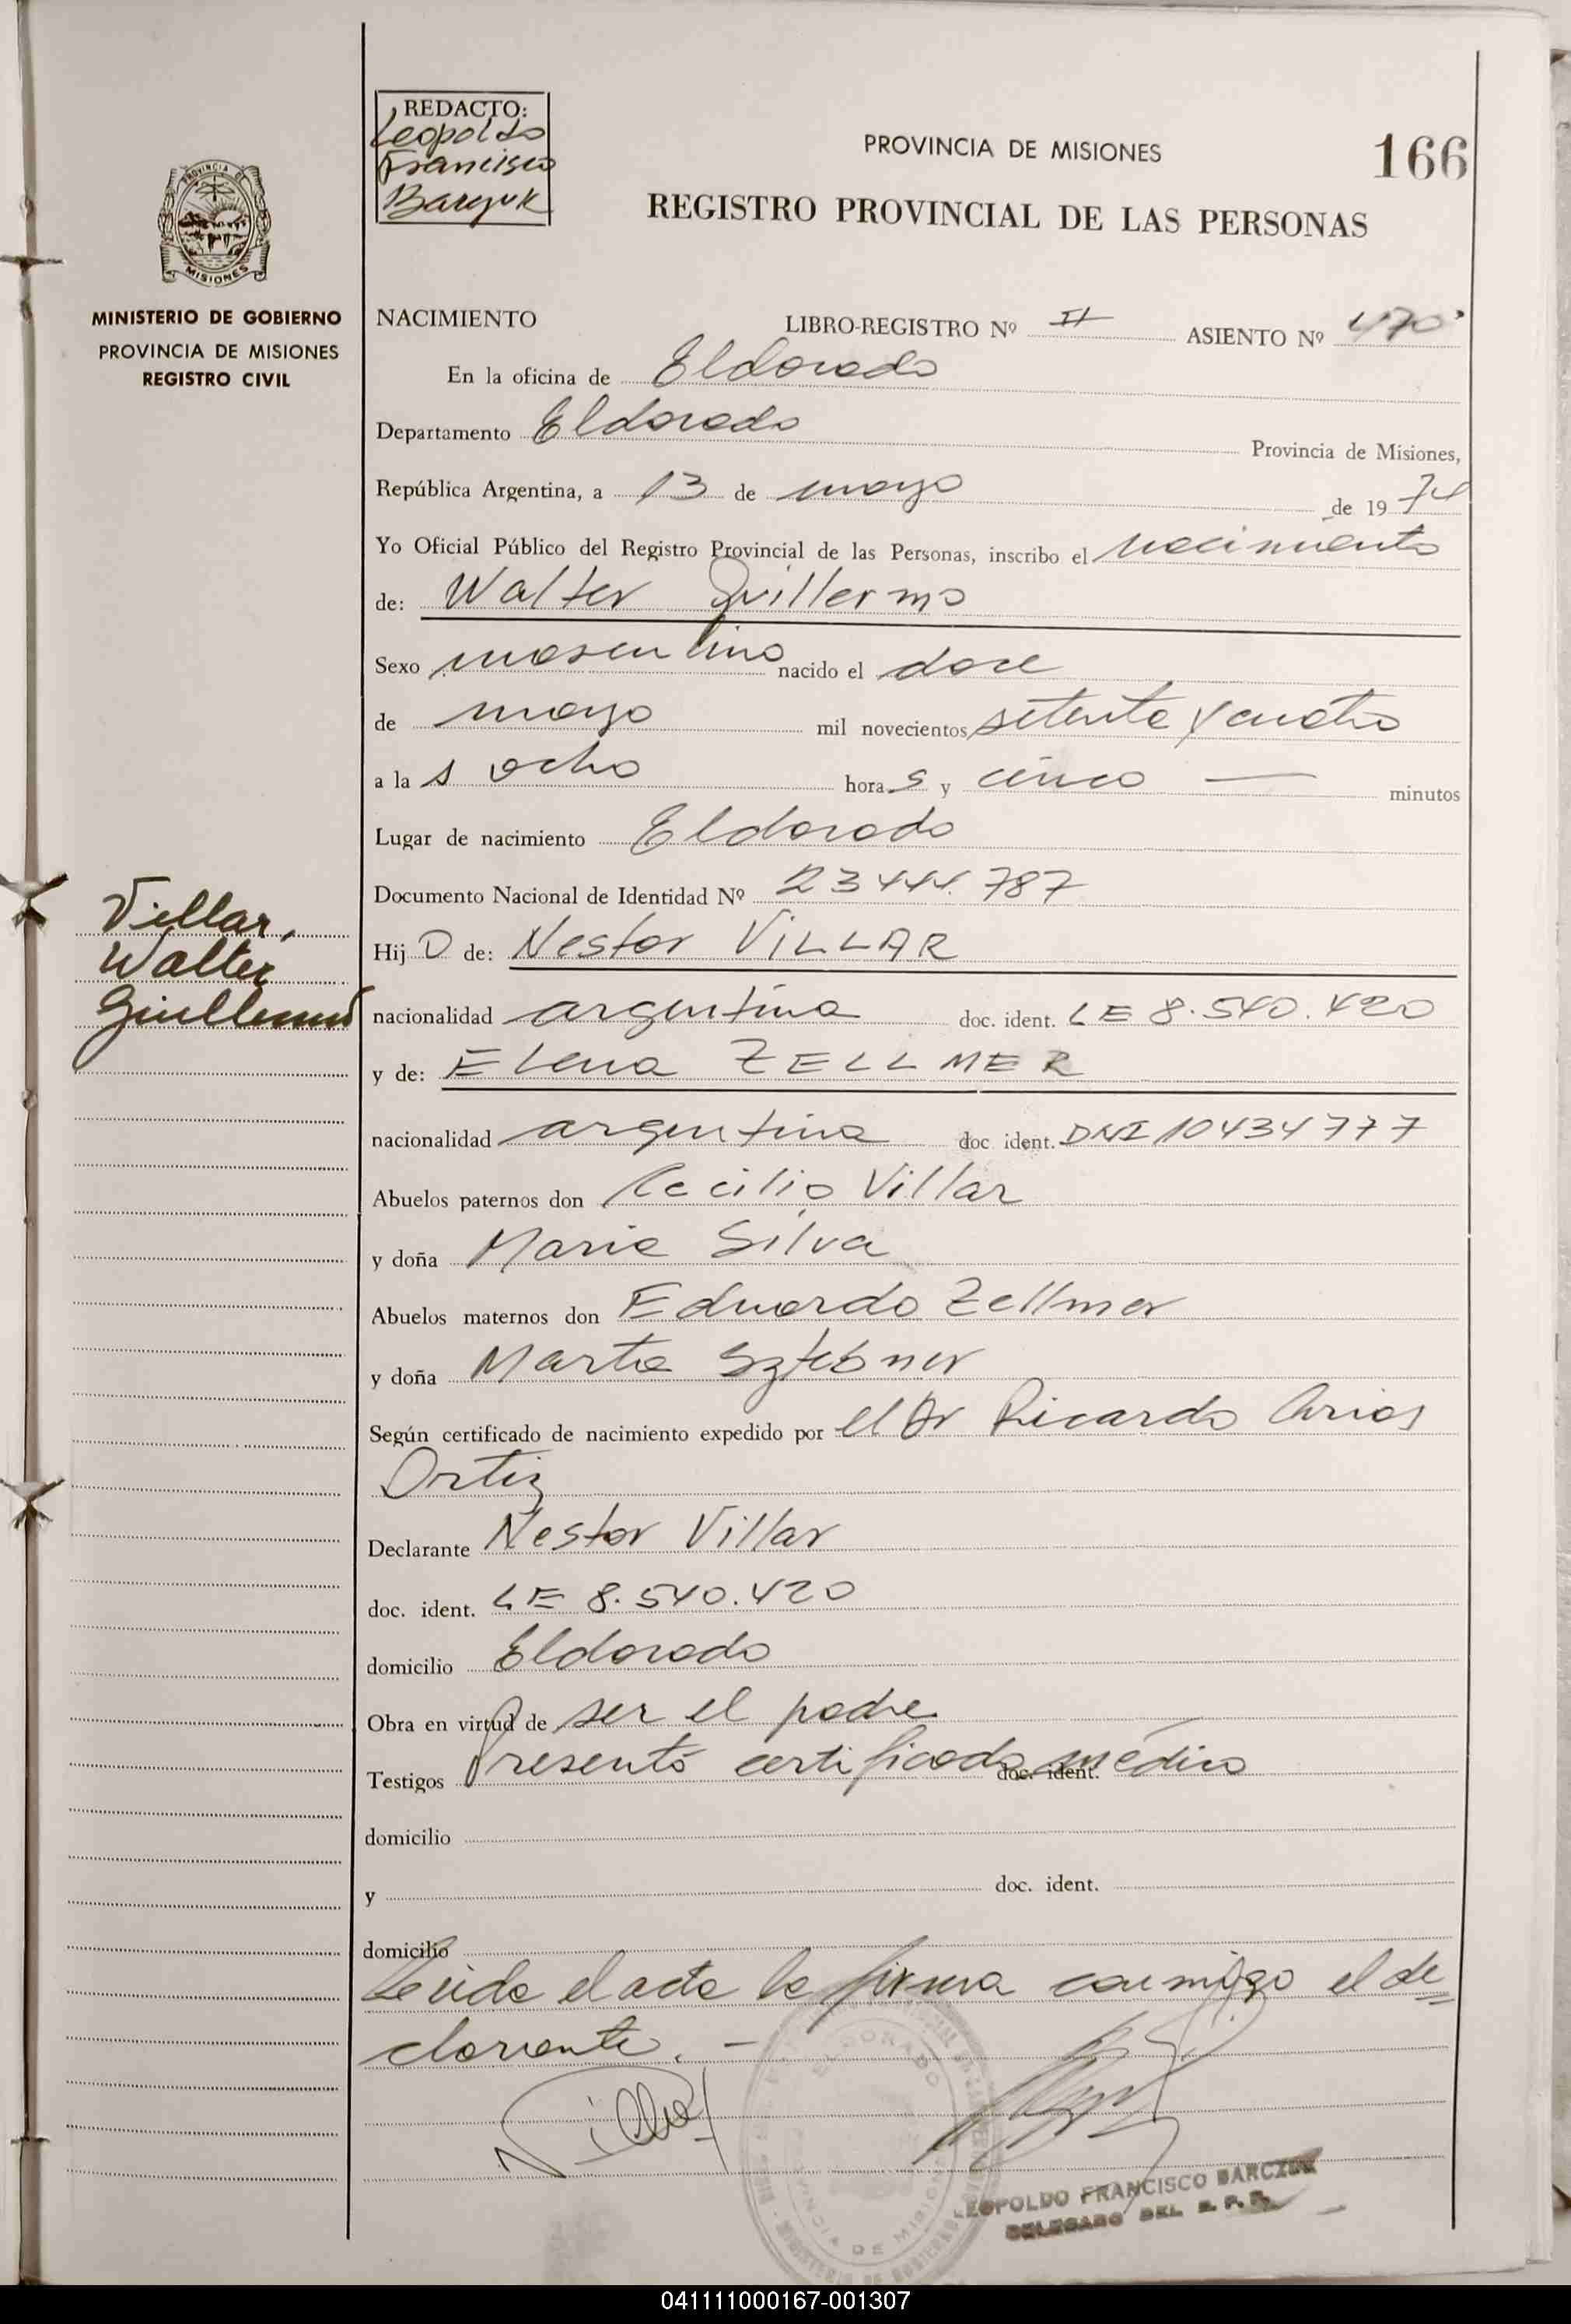 REDACTO:
Leopoldo
Francisco
Barczuk
PROVINCIA DE MISIONES
166
REGISTRO PROVINCIAL DE LAS PERSONAS
PROVINCIA DE
MISIONES
MINISTERIO DE GOBIERNO
PROVINCIA DE MISIONES
REGISTRO CIVIL
NACIMIENTO LIBRO-REGISTRO Nº II ASIENTO Nº 470
En la oficina de Eldorado
Departamento Eldorado Provincia de Misiones,
República Argentina, a 13 de mayo de 1974
Yo Oficial Público del Registro Provincial de las Personas, inscribo el nacimiento
de: Walter Guillermo
Sexo masculino nacido el doce
de mayo mil novecientos setenta y cuatro
a la s ocho hora s y cinco — minutos
Lugar de nacimiento Eldorado
Documento Nacional de Identidad Nº 23444.787
Villar,
Walter
Guillermo
Hij O de: Nestor VILLAR
nacionalidad argentina doc. ident. LE 8.540.420
y de: Elena ZELLMER
nacionalidad argentina doc ident. DNI 10434777
Abuelos paternos don Cecilio Villar
y doña Maria Silva
Abuelos maternos don Eduardo Zellmer
y doña Marta Sztebner
Según certificado de nacimiento expedido por el Dr Ricardo Arias
Ortiz
Declarante Nestor Villar
doc. ident. LE 8.540.420
domicilio Eldorado
Obra en virtud de ser el padre
Testigos Presentó certificado médico doc. ident.
domicilio
y doc. ident.
domicilio
Leida el acta la firma conmigo el de=
clarante. —
Villar
ELDORADO
PROVINCIA DE MISIONES
LEOPOLDO FRANCISCO BARCZUK
DELEGADO DEL R. P. P.
041111000167-001307